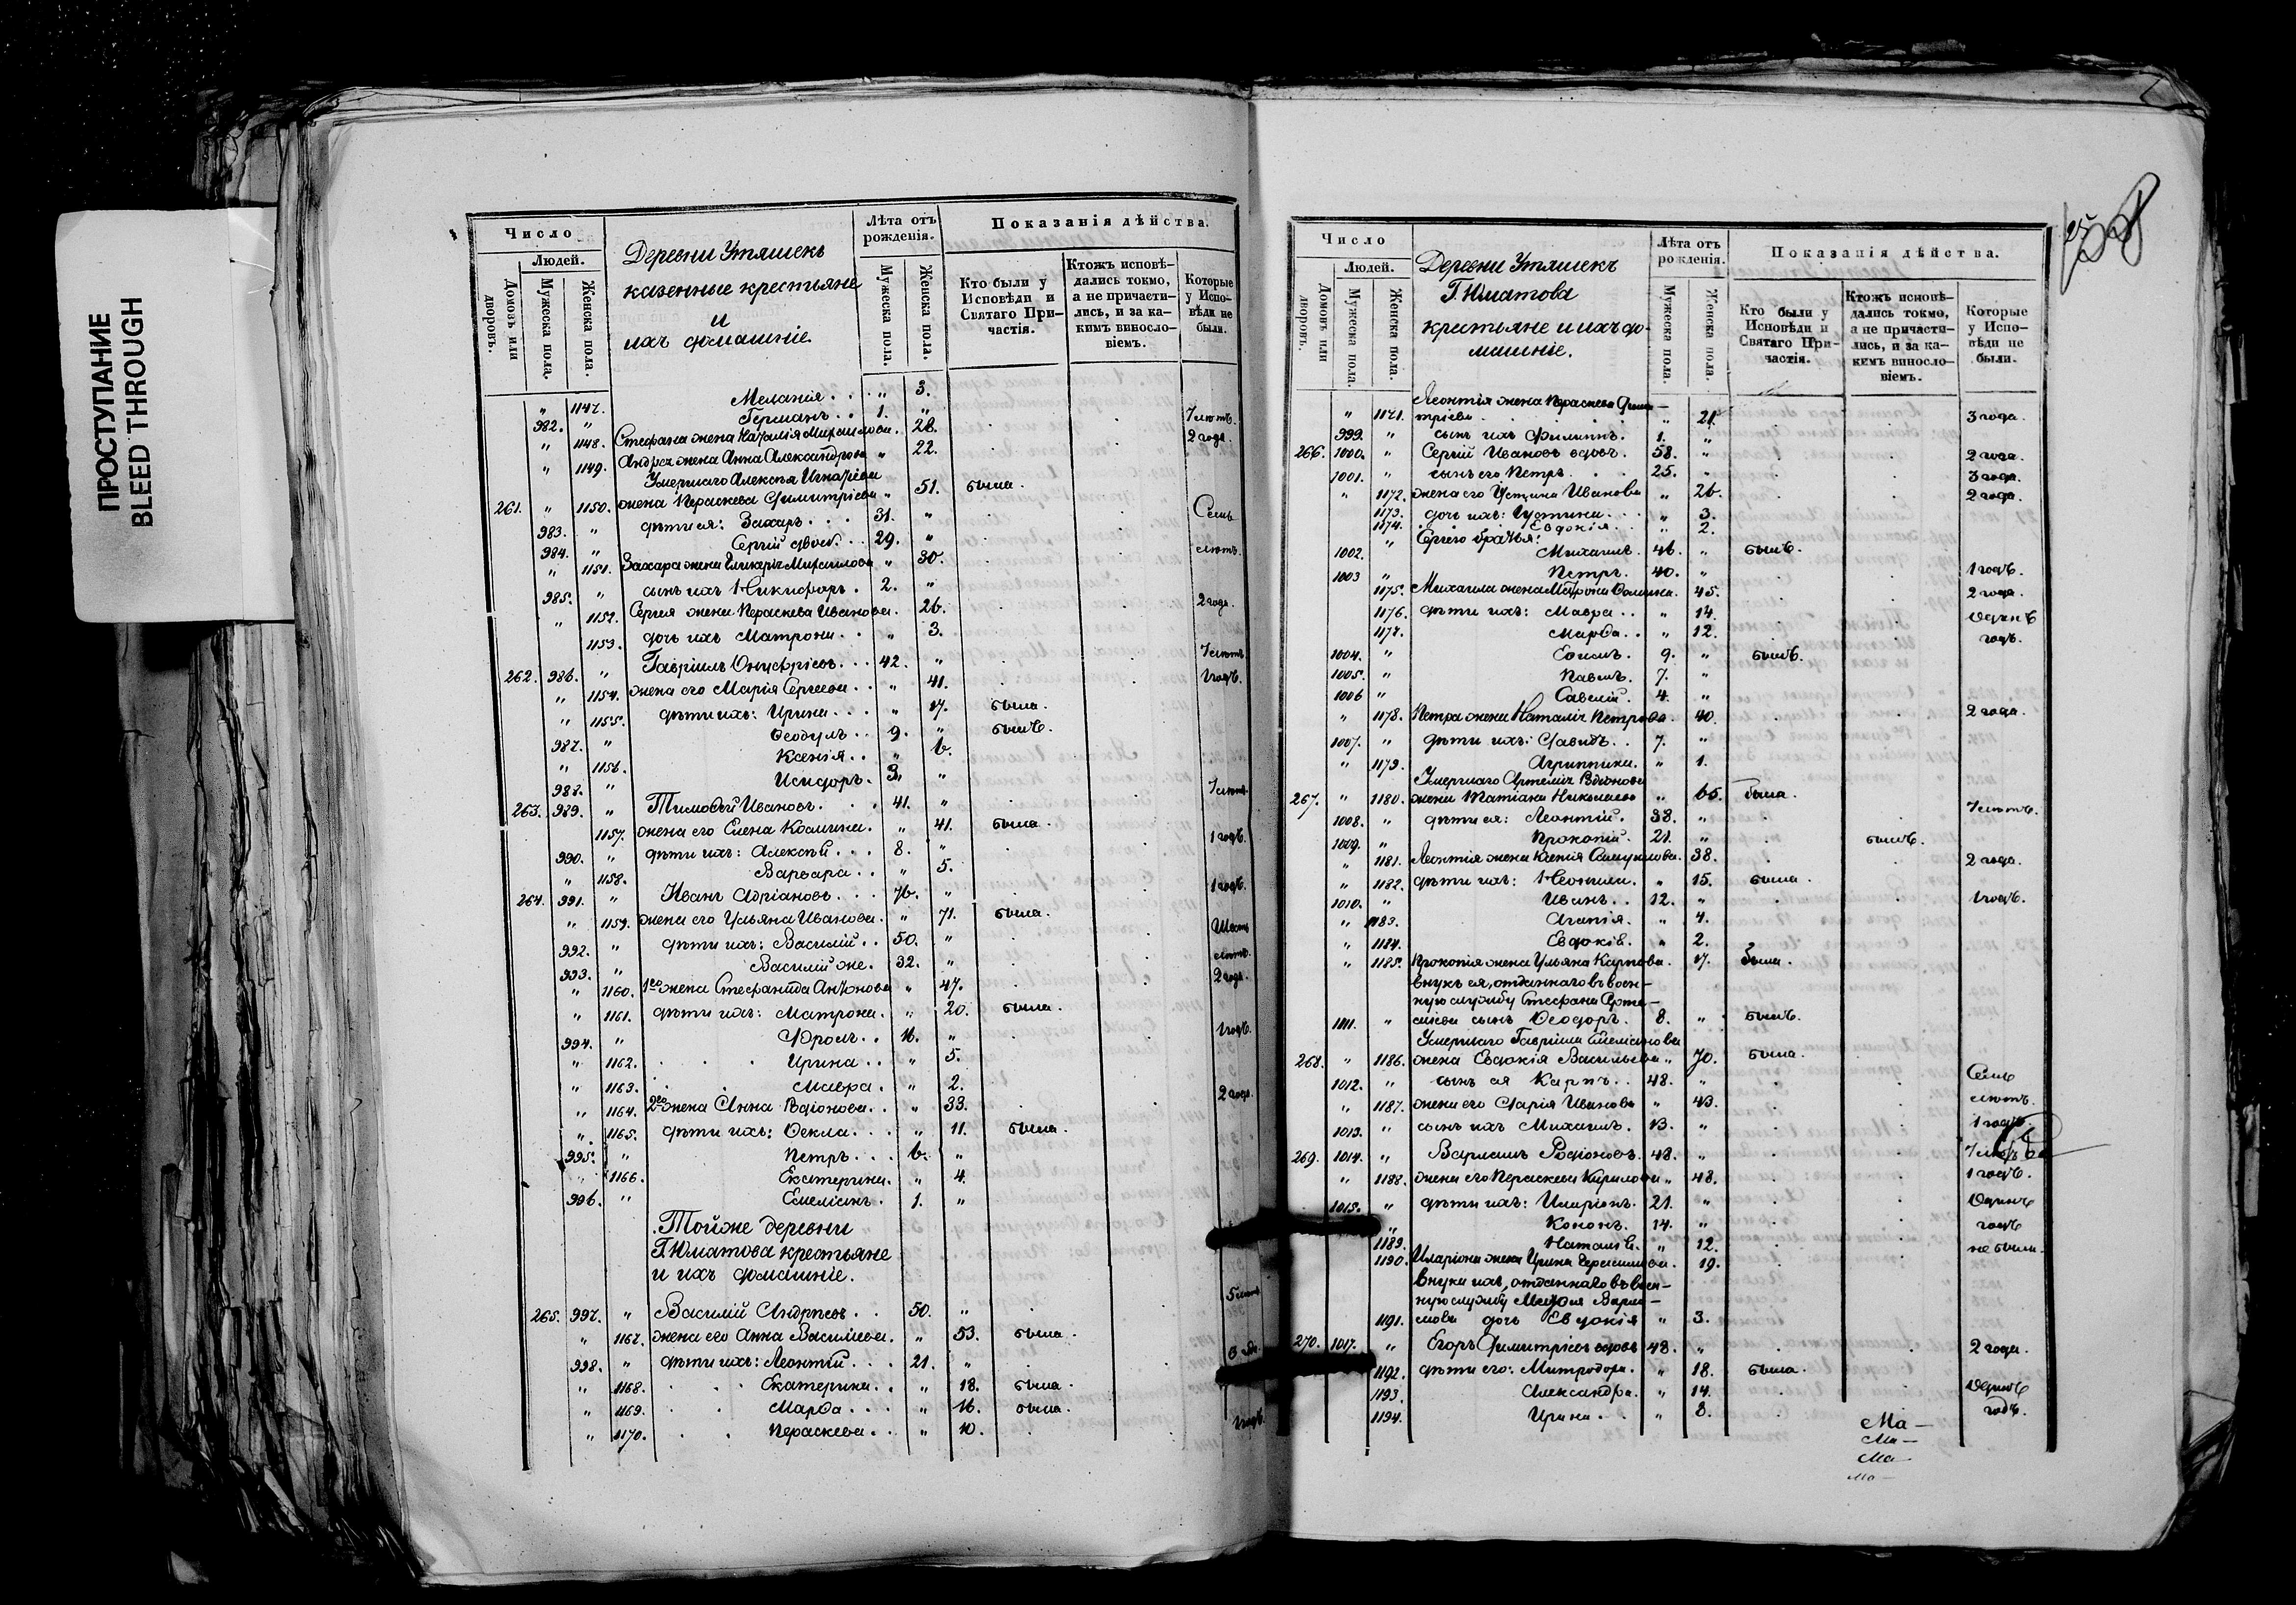 ПРОСТУПАНИЕ
BLEED THROUGH
Число
Людей.
Домовъ или дворовъ.
Мужеска пола.
Женска пола.
Деревни Утяшекъ
казенные крестьяне
и
ихъ домашніе.
Лѣта отъ рожденія.
Мужеска пола.
Женска пола.
Показанія дѣйства.
Кто были у Исповѣди и Святаго Причастія.
Ктожъ исповѣдались токмо, а не причастились, и за какимъ винословіемъ.
Которые у Исповѣди не были.
" 1147. Меланія . . " 3.
982. " Германъ . . 1. "
" 1148. Стефана жена Наталія Михаилова. 28. 7 лѣтъ.
" 1149. Андрея жена Анна Александрова " 22. 2 года.
Умершаго Алексѣя Игнатіева
261. " 1150. жена Параскева Димитріева " 51. была.
983. " дѣти ея: Захаръ . . . 31. " Семь
984. " Сергій двое. . . 29. " лѣтъ.
" 1151. Захара жена Гликерія Михаилова " 30.
985. " сынъ ихъ Никифоръ . 2. "
" 1152. Сергія жена Параскева Иванова. 26. 2 года.
1153. дочь ихъ Матрона . . " 3.
262. 986. " Гавріилъ Онуфріевъ . . . 42. " 7 лѣтъ
" 1154. жена его Марія Сергеева . . " 41. 1 годъ.
" 1155. дѣти ихъ: Ирина . . . " 17. была.
987. " Ѳеодулъ . . 9. " былъ.
" 1156. Ксенія . . " 6.
988. " Исидоръ . 3. "
263. 989. " Тимоѳей Ивановъ. . . . 41. " 7 лѣтъ
1157. жена его Елена Космина. . " 41. была.
990. " дѣти ихъ: Алексѣй . . . 8. " 1 годъ.
" 1158. Варвара . . " 5.
264. 991. " Иванъ Адріановъ . . . 76. " 1 годъ.
" 1159. жена его Ульяна Иванова. . " 71. была.
992. " дѣти ихъ: Василій . . 50. " Шесть
993. " Василій же. . 32. " лѣтъ.
" 1160. 1ая жена Стефанида Антонова " 47. 2 года.
" 1161. дѣти ихъ: Матрона. . " 20. была.
994. " Фролъ . . 16. " 1 годъ.
" 1162. Ирина . . " 5.
" 1163. Мавра. . " 2.
" 1164. 2ая жена Анна Родіонова. . " 33. 2 года.
" 1165. дѣти ихъ: Ѳекла. . . " 11. была.
995. " Петръ . . . 6. "
" 1166. Екатерина. . " 4.
996. " Емеліанъ . 1. "
Тойже деревни
Г. Юматова крестьяне
и ихъ домашніе.
265. 997. " Василій Андреевъ . . 50. " 5 лѣтъ
" 1167. жена его Анна Василіева. . " 53. была.
998. " дѣти ихъ: Леонтій . . . 21. "
" 1168. Екатерина. . " 18. была.
" 1169. Марѳа . . . " 16. была.
" 1170. Параскева. . " 10. 1 годъ.
Число
Людей.
Домовъ или дворовъ.
Мужеска пола.
Женска пола.
Деревни Утяшекъ
Г. Юматова
крестьяне и ихъ до-
машніе.
Лѣта отъ рожденія.
Мужеска пола.
Женска пола.
Показанія дѣйства.
Кто были у Исповѣди и Святаго Причастія.
Ктожъ исповѣдались токмо, а не причастились, и за какимъ винословіемъ.
Которые у Исповѣди не были.
Леонтія жена Параскева Дими-
" 1171. тріева . " 21. 3 года.
999. " сынъ ихъ Филиппъ. 1. "
266. 1000. " Сергій Ивановъ вдовъ. 58. " 2 года.
1001. " сынъ его Петръ . . . 25. " 3 года.
" 1172. жена его Устина Иванова " 26. 2 года.
1173. дочь ихъ: Іустина. . . " 3.
1174. Евдокія. . " 2.
Сергія братья:
1002. " Михаилъ. 46. " былъ.
1003 " Петръ. 40. " 1 годъ.
1175. Михаила жена Матрона Космина. 45. 2 года.
1176. дѣти ихъ: Мавра . . " 14. Одинъ
1177. Марѳа. . " 12. годъ.
1004. " Евѳимъ. 9. " былъ.
1005. " Павелъ. 7. "
1006 " Савелій. 4. "
" 1178. Петра жена Наталія Петрова. 40. 2 года.
1007. " дѣти ихъ: Давидъ. . 7. "
" 1179. Агриппина. " 1.
Умершаго Артемія Родіонова
267. " 1180. жена Татіана Николаева " 65. была.
1008. " дѣти ея: Леонтій. 38. " 7 лѣтъ.
1009. " Прокопій. 21. " былъ.
" 1181. Леонтія жена Ксенія Самуилова. 38. 2 года.
" 1182. дѣти ихъ: Неонила. " 15. была.
1010. " Иванъ. . 12. " 1 годъ.
" 1183. Агапія. " 4.
" 1184. Евдокія. " 2.
" 1185. Прокопія жена Ульяна Карпова. 17. была.
внукъ ея, отданнаго въ воен-
ную службу Стефана Арте-
1011. " міева сынъ Ѳеодоръ. 8. " былъ.
Умершаго Гавріила Емеліанова
268. " 1186. жена Евдокія Васильева " 70. была.
1012. " сынъ ея Карпъ. . 48. " Семь
" 1187. жена его Дарія Иванова " 43. лѣтъ.
1013. " сынъ ихъ Михаилъ. 13. " 1 годъ.
269. 1014. " Варлаамъ Родіоновъ. 48. " 7 лѣтъ
" 1188. жена его Параскева Кирилова " 48. 1 годъ.
1015. " дѣти ихъ: Иларіонъ. 21. " Одинъ
" Кононъ. 14. " годъ
1189. Наталія. " 12. не была.
1190. Иларіона жена Ирина Герасимова. 19.
внука ихъ, отданнаго въ воен-
ную службу Меѳодія Варла-
1191. мова дочь Евдокія " 3.
270. 1017. " Егоръ Димитріевъ вдовъ 48. " 2 года.
1192. дѣти его: Митродора. " 18. была.
1193. Александра. " 14. Одинъ
1194. Ирина . . " 8. годъ.
Ма—
Ма—
Ма—
Ма—